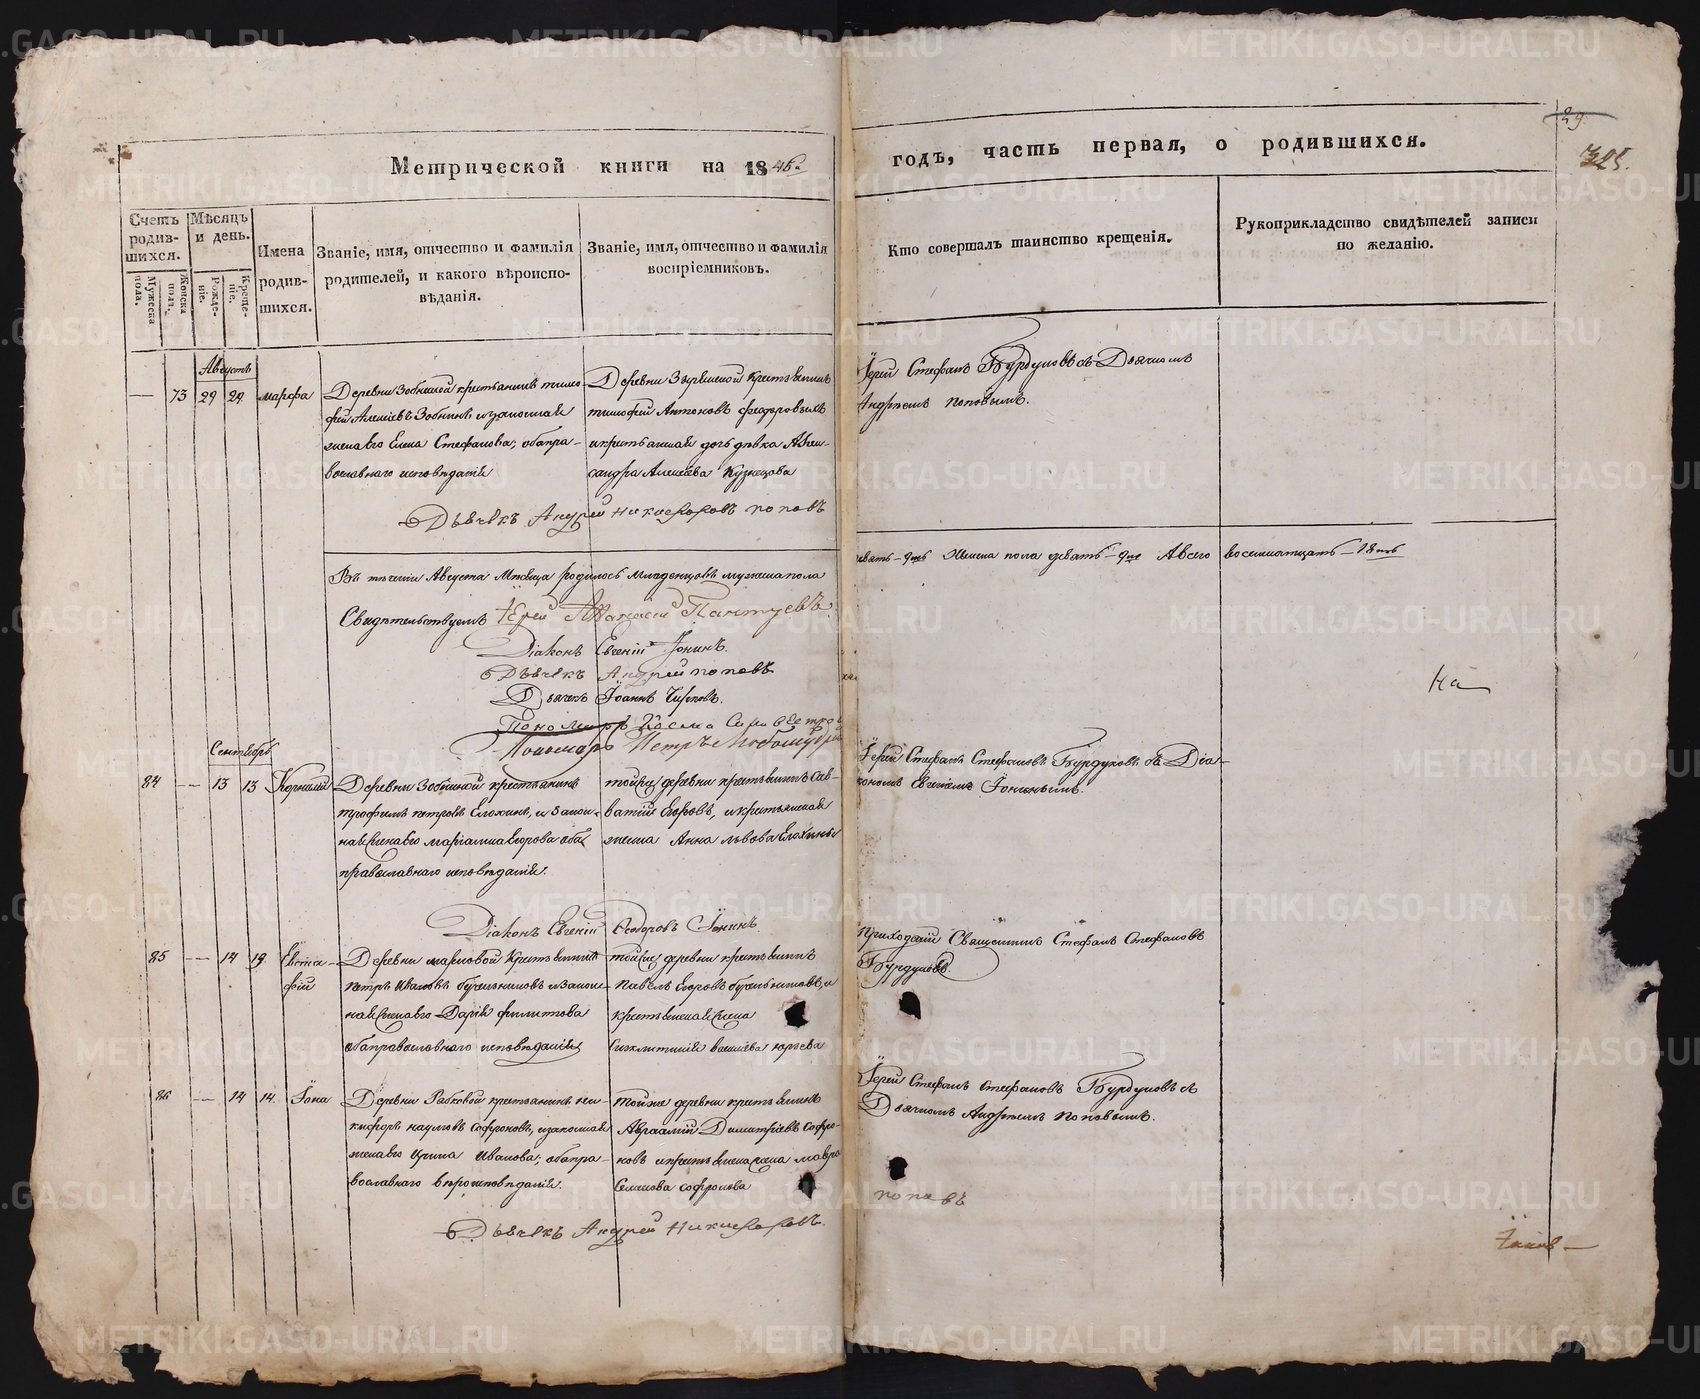 Метрической книги на 1846.
годъ, часть первая, о родившихся.
29.
325.
Счетъ родив-шихся.
Мужеска пола.
Женска пола.
Мѣсяцъ и день.
Рожде-ніе.
Креще-ніе.
Имена родив-шихся.
Званіе, имя, отчество и фамилія
родителей, и какого вѣроиспо-
вѣданія.
Званіе, имя, отчество и фамилія
воспріемниковъ.
Кто совершалъ таинство крещенія.
Рукоприкладство свидѣтелей записи
по желанію.
Августъ
73 29 29 марфа
Деревни крестьянинъ тимо-
фей Алексѣевъ и законная
жена его Елена Стефанова, оба пра-
вославнаго исповѣданія
Деревни крестьянинъ
тимофей Антоновъ федоровыхъ
и крестьянская дочь дѣвка Алек-
сандра Алексѣева Кузнецова
Іерей Стефанъ Бурдуковъ съ Дьячкомъ
Андреемъ Поповымъ.
Дьячекъ Андрей Никифоровъ Поповъ
Въ теченіи Августа Мѣсяца родилось младенцовъ мужеска пола
девять - 9ть Женска пола девять - 9ть А всего восемнатцать - 18ть
Свидѣтельствуемъ Іерей Пантуевъ
Діаконъ Евгеній Іонинъ.
Дьячекъ Андрей Поповъ
Дьячекъ Іоаннъ
Пономарь Косма
Пономарь Петръ
На
Сентябрь
84 13 13 Корнилій
Деревни крестьянинъ
трофимъ петровъ Елохинъ, и закон-
ная жена его маріамна Егорова оба
православнаго исповѣданія.
тойже деревни крестьянинъ Сав-
ватій Егоровъ, и крестьянская
жена Анна львова Елохины
Іерей Стефанъ Стефановъ Бурдуковъ съ Діа-
кономъ Евгеніемъ Іонинымъ.
Діаконъ Евгеній Федоровъ Іонинъ.
85 14 19 Евста-
фій
Деревни крестьянинъ
петръ Ивановъ и закон-
ная жена его Дарія филипова
оба православнаго исповѣданія
тойже деревни крестьянинъ
Павелъ Егоровъ и
крестьянская жена
васильева юрьева
Приходскій Священникъ Стефанъ Стефановъ
Бурдуковъ.
86 14 14. Іона
Деревни крестьянинъ ни-
кифоръ наумовъ Софроновъ, и законная
жена его Ирина Иванова, оба пра-
вославнаго вѣроисповѣданія.
тойже деревни крестьянинъ
Авраамій Димитріевъ Софро-
новъ и крестьянская жена мавра
Семенова софронова
Іерей Стефанъ Стефановъ Бурдуковъ съ
Дьячкомъ Андреемъ Поповымъ.
Дьячекъ Андрей Никифоровъ.
поповъ